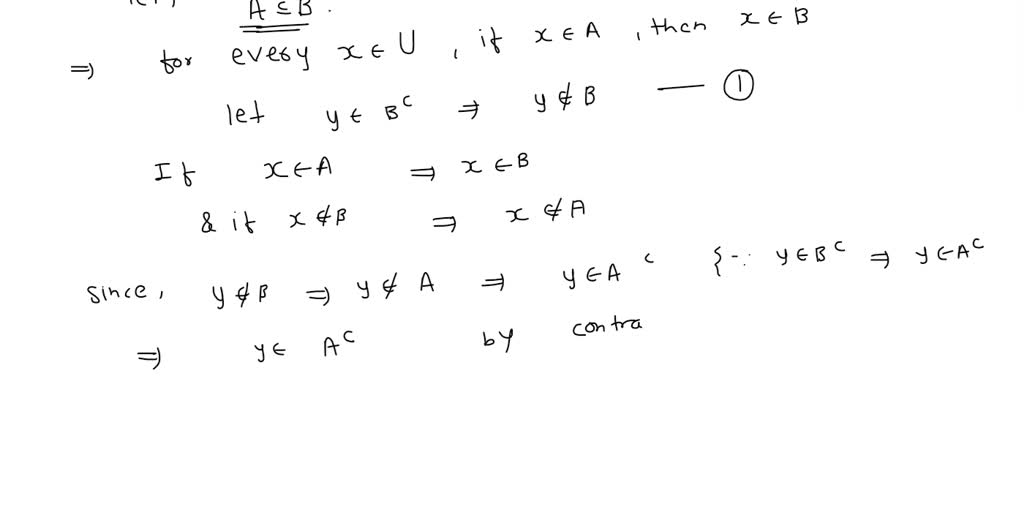 A ⊆ B.
⇒ for every x ∈ U, if x ∈ A, then x ∈ B
let y ∈ B^c ⇒ y ∉ B — ①
If x ∈ A ⇒ x ∈ B
& if x ∉ B ⇒ x ∉ A
Since, y ∉ B ⇒ y ∉ A ⇒ y ∈ A^c {∵ y ∈ B^c ⇒ y ∈ A^c
⇒ y ∈ A^c by contra